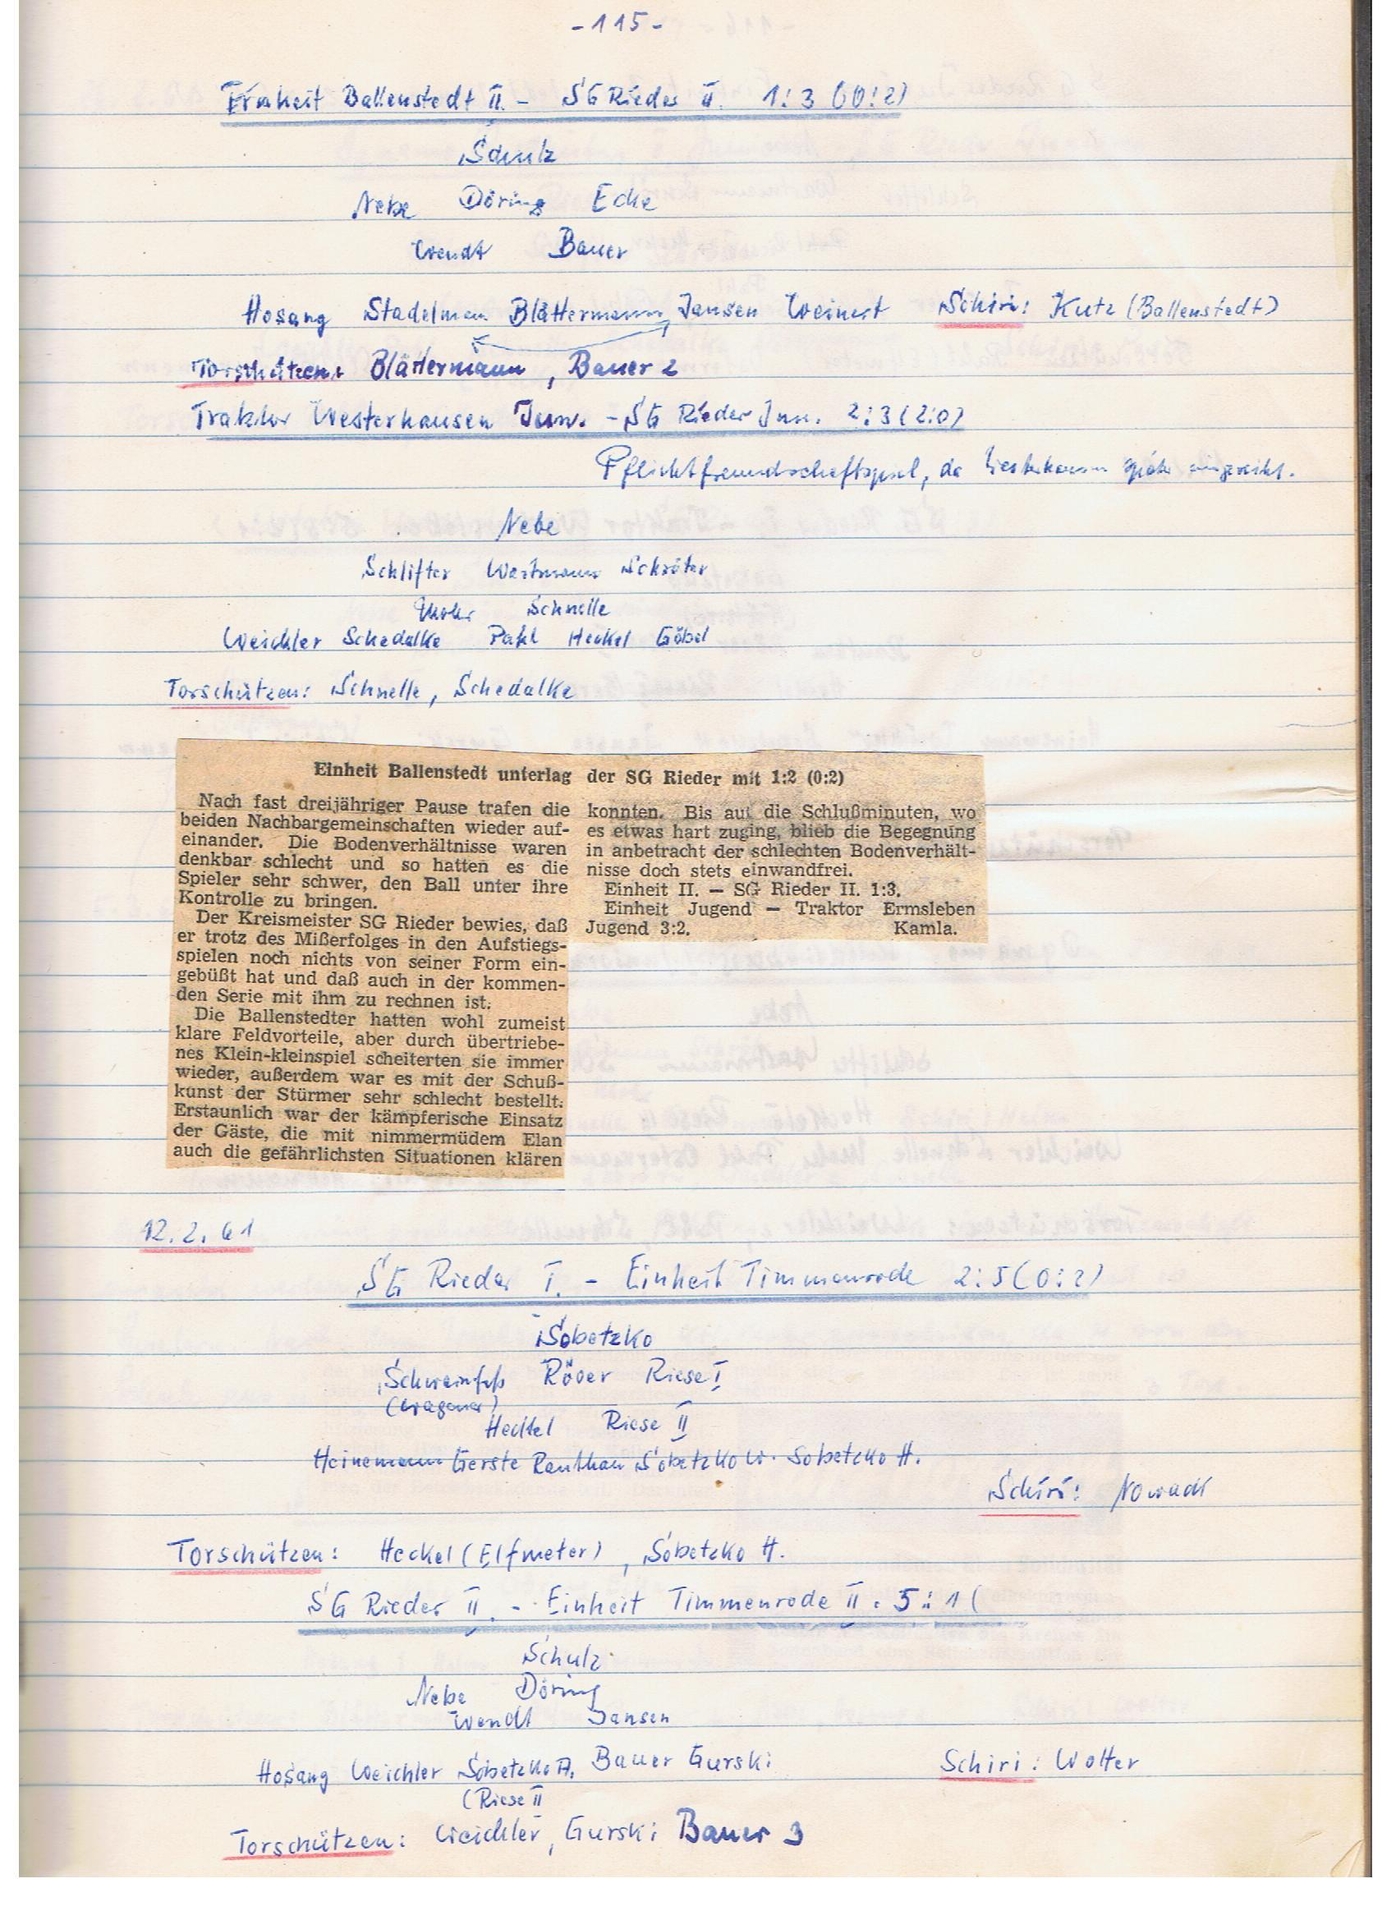 - 115 -
Einheit Ballenstedt II. - SG Rieder II. 1:3 (0:2)
Schulz
Nebe Döring Ecke
Wendt Bauer
Hosang Stadelman Blättermann Jansen Weinert Schiri: Kutz (Ballenstedt)
Torschützen: Blättermann, Bauer 2
Traktor Westerhausen Jun. - SG Rieder Jun. 2:3 (2:0)
Pflichtfreundschaftsspiel, da Westerhausen spät angereist.
Nebe
Schlifter Wartmann Schröter
Mohr Schnelle
Weichler Schedalke Pahl Heckel Göbel
Torschützen: Schnelle, Schedalke
Einheit Ballenstedt unterlag der SG Rieder mit 1:2 (0:2)
Nach fast dreijähriger Pause trafen die
beiden Nachbargemeinschaften wieder auf-
einander. Die Bodenverhältnisse waren
denkbar schlecht und so hatten es die
Spieler sehr schwer, den Ball unter ihre
Kontrolle zu bringen.
Der Kreismeister SG Rieder bewies, daß
er trotz des Mißerfolges in den Aufstiegs-
spielen noch nichts von seiner Form ein-
gebüßt hat und daß auch in der kommen-
den Serie mit ihm zu rechnen ist.
Die Ballenstedter hatten wohl zumeist
klare Feldvorteile, aber durch übertriebe-
nes Klein-kleinspiel scheiterten sie immer
wieder, außerdem war es mit der Schuß-
kunst der Stürmer sehr schlecht bestellt.
Erstaunlich war der kämpferische Einsatz
der Gäste, die mit nimmermüdem Elan
auch die gefährlichsten Situationen klären
konnten. Bis auf die Schlußminuten, wo
es etwas hart zuging, blieb die Begegnung
in anbetracht der schlechten Bodenverhält-
nisse doch stets einwandfrei.
Einheit II. — SG Rieder II. 1:3.
Einheit Jugend — Traktor Ermsleben
Jugend 3:2. Kamla.
12.2.61
SG Rieder I. - Einheit Timmenrode 2:5 (0:2)
Sobetzko
Schweinfuß Röver Riese I
(Wagener)
Heckel Riese II
Heinemann Gerste Rauthau Sobetzko W. Sobetzko H.
Schiri: Nowack
Torschützen: Heckel (Elfmeter), Sobetzko H.
SG Rieder II. - Einheit Timmenrode II. 5:1 (
Schulz
Nebe Döring
Wendt Jansen
Hosang Weichler Sobetzko A. Bauer Gurski Schiri: Wolter
(Riese II
Torschützen: Weichler, Gurski Bauer 3